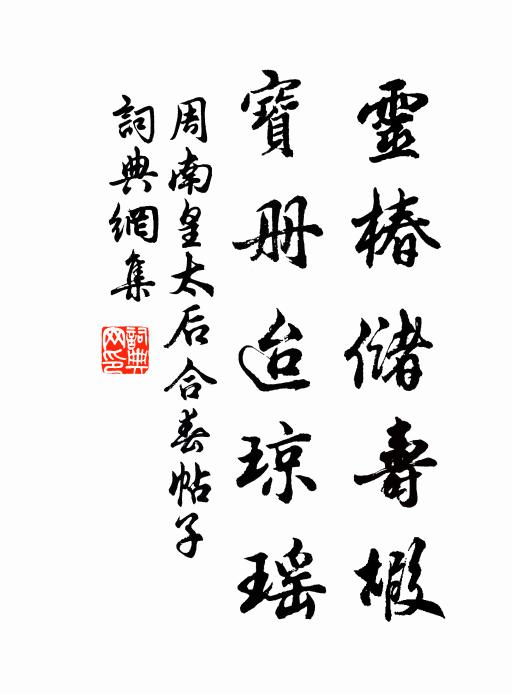 靈椿儲壽椵
寶册迨琼瑶
周南皇太后合春帖子
詞典網集
詞典网印